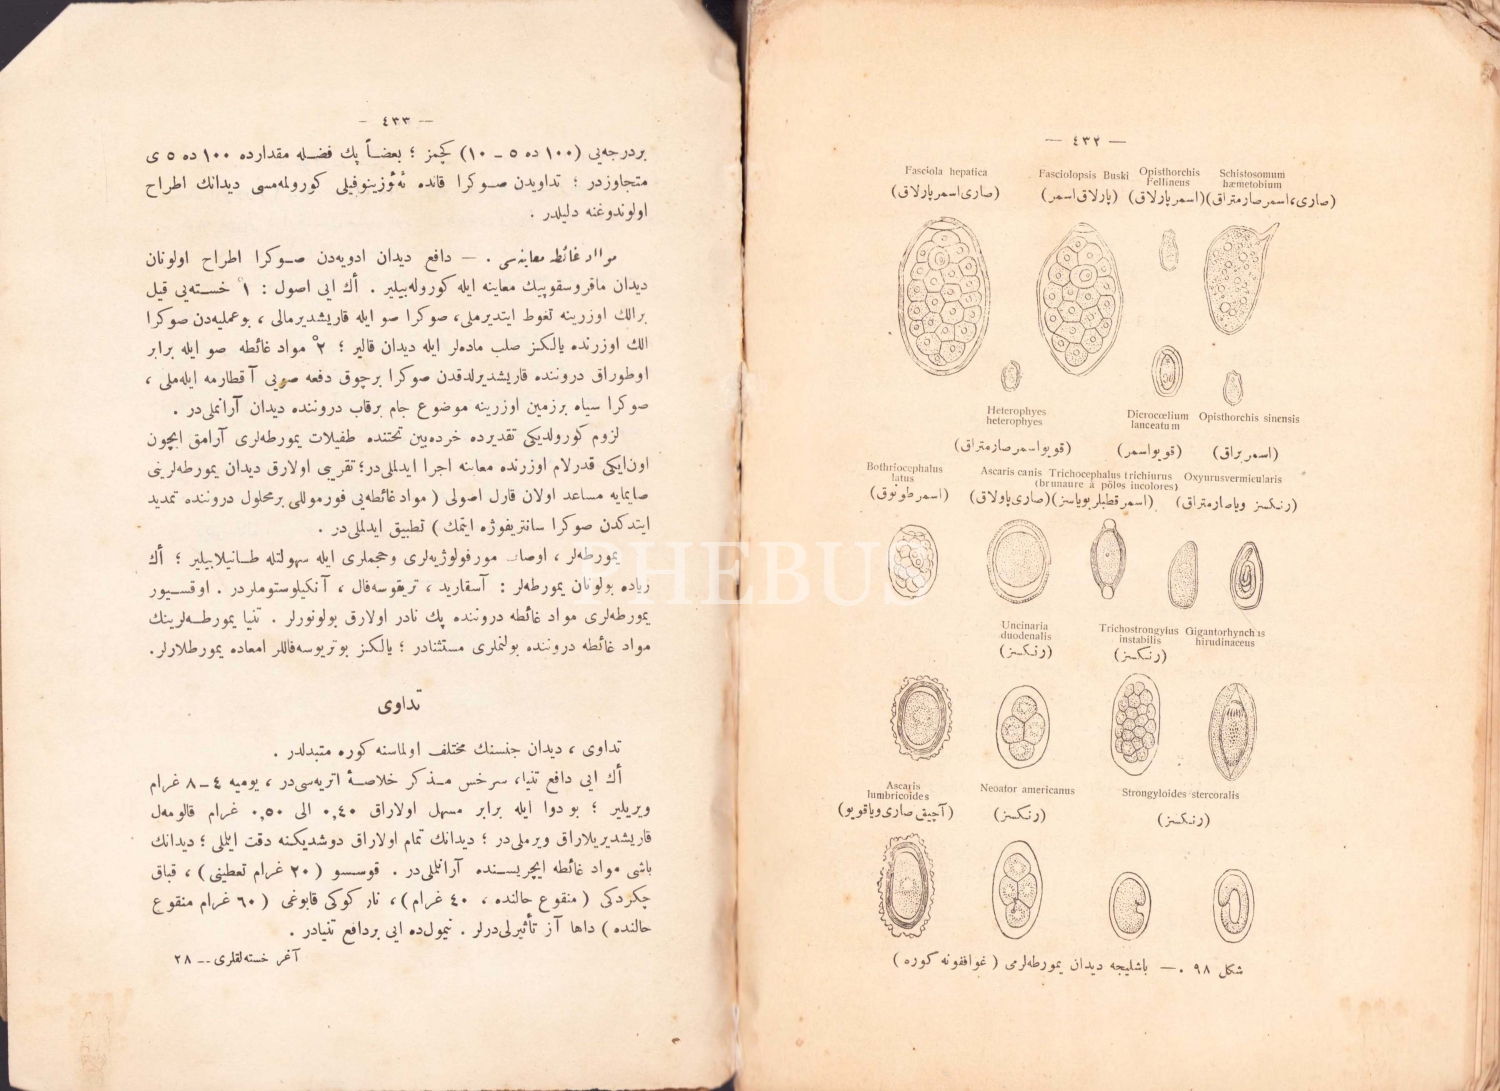 — ٤٣٢ —
Fasciola hepatica
(صاری اسمر پارلاق)
Fasciolopsis Buski
(پارلاق اسمر)
Opisthorchis
Fellineus
(اسمر پارلاق)
Schistosomum
hæmetobium
(صاری، اسمر صارمتراق)
Heterophyes
heterophyes
(قویو اسمر صارمتراق)
Dicrocœlium
lanceatum
(قویو اسمر)
Opisthorchis sinensis
(اسمر براق)
Bothriocephalus
latus
(اسمر طونوق)
Ascaris canis Trichocephalus trichiurus
(brunaure à pôlos incolores)
(صاری پاولاق) (اسمر قطبلر بویاسز)
Oxyurusvermicularis
(رنكسز ویا صارمتراق)
Uncinaria
duodenalis
(رنكسز)
Trichostrongylus
instabilis
(رنكسز)
Gigantorhynchus
hirudinaceus
Ascaris
lumbricoides
(آچیق صاری ویا قویو)
Neoator americanus
(رنكسز)
Strongyloides stercoralis
(رنكسز)
شكل ٩٨ . — باشلیجه دیدان یمورطه‌لرمی ( غوافقونه كوره )
— ٤٣٣ —
بردرجه‌یی (١٠٠ ده ٥ ـ ١٠) كچمز ؛ بعضاً پك فضله مقدارده ١٠٠ ده ٥ ی
متجاوزدر ؛ تداویدن صوكرا قانده ئه‌ئوزینوفیلی كورولمه‌مسی دیدانك اطراح
اولوندوغنه دلیلدر .
مواد غائطه معاینه‌سی . — دافع دیدان ادویه‌دن صوكرا اطراح اولونان
دیدان ماقروسقوپیك معاینه ایله كوروله‌بیلیر . أك ایی اصول : ١° خسته‌یی قیل
برالك اوزرینه تغوط ایتدیرملی، صوكرا صو ایله قاریشدیرمالی ، بوعملیه‌دن صوكرا
الك اوزرنده یالكز صلب ماده‌لر ایله دیدان قالیر ؛ ٢° مواد غائطه صو ایله برابر
اوطوراق دروننده قاریشدیرلدقدن صوكرا برچوق دفعه صویی آقطارمه ایله‌ملی ،
صوكرا سیاه برزمین اوزرینه موضوع جام برقاب دروننده دیدان آرانملی‌در .
لزوم كورولدیكی تقدیرده خرده‌بین تحتنده طفیلات یمورطه‌لری آرامق ایچون
اون‌ایكی قدرلام اوزرنده معاینه اجرا ایدلملی‌در؛ تقریبی اولارق دیدان یمورطه‌لرینی
صایمایه مساعد اولان قارل اصولی ( مواد غائطه‌یی فورموللی برمحلول دروننده تمدید
ایتدكدن صوكرا سانتریفوژه ایتمك ) تطبیق ایدلملی‌در .
یمورطه‌لر ، اوصاف مورفولوژیه‌لری وحجملری ایله سهولتله طانیلابیلیر ؛ أك
زیاده بولونان یمورطه‌لر : آسقارید ، تریقوسه‌فال ، آنكیلوستوملردر . اوقسیور
یمورطه‌لری مواد غائطه دروننده پك نادر اولارق بولونورلر . تنیا یمورطه‌لرینك
مواد غائطه دروننده بولنملری مستثنادر ؛ یالكز بوتریوسه‌فاللر امعاده یمورطلارلر.
تداوی
تداوی ، دیدان جنسنك مختلف اولماسنه كوره متبدلدر .
أك ایی دافع تنیا، سرخس مذكر خلاصهٔ اتریه‌سی‌در ، یومیه ٤ـ٨ غرام
ویریلیر ؛ بو دوا ایله برابر مسهل اولاراق ٠,٤٠ الی ٠,٥٠ غرام قالومه‌ل
قاریشدیریلاراق ویرملی‌در ؛ دیدانك تمام اولاراق دوشدیكنه دقت ایتملی ؛ دیدانك
باشی مواد غائطه ایچریسنده آرانملی‌در . قوسسو ( ٢٠ غرام تعطینی ) ، قباق
چكردكی ( منقوع حالنده ، ٤٠ غرام ) ، نار كوكی قابوغی ( ٦٠ غرام منقوع
حالنده ) داها آز تأثیرلی‌درلر . تیمول‌ده ایی بردافع تنیادر .
آغر خسته‌لقلری ــ ٢٨
PHEBUS